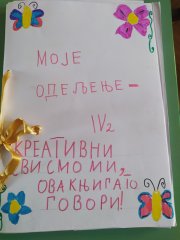 МОЈЕ
ОДЕЉЕЊЕ –
IV2
КРЕАТИВНИ
СВИ СМО МИ,
ОВА КЊИГА ТО
ГОВОРИ!